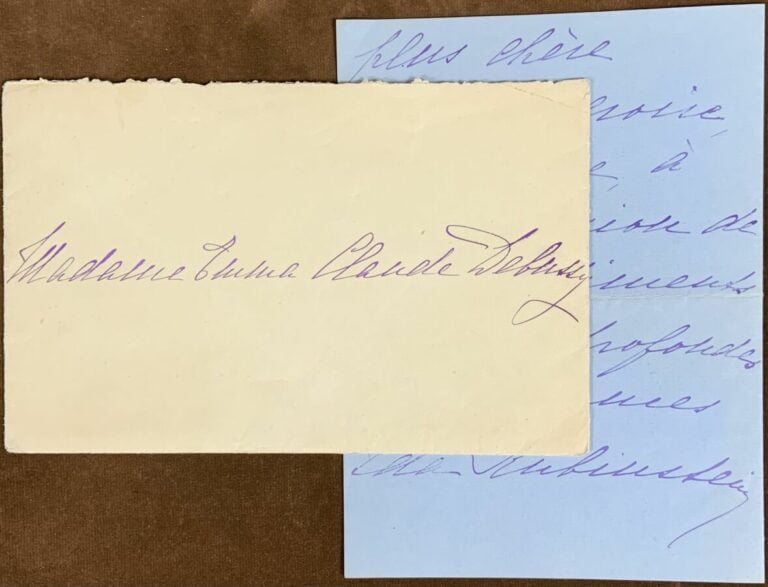 Madame Emma Claude Debussy
plus chère
croire,
e, à
sion de
iments
profondes
nces
Ida Rubinstein